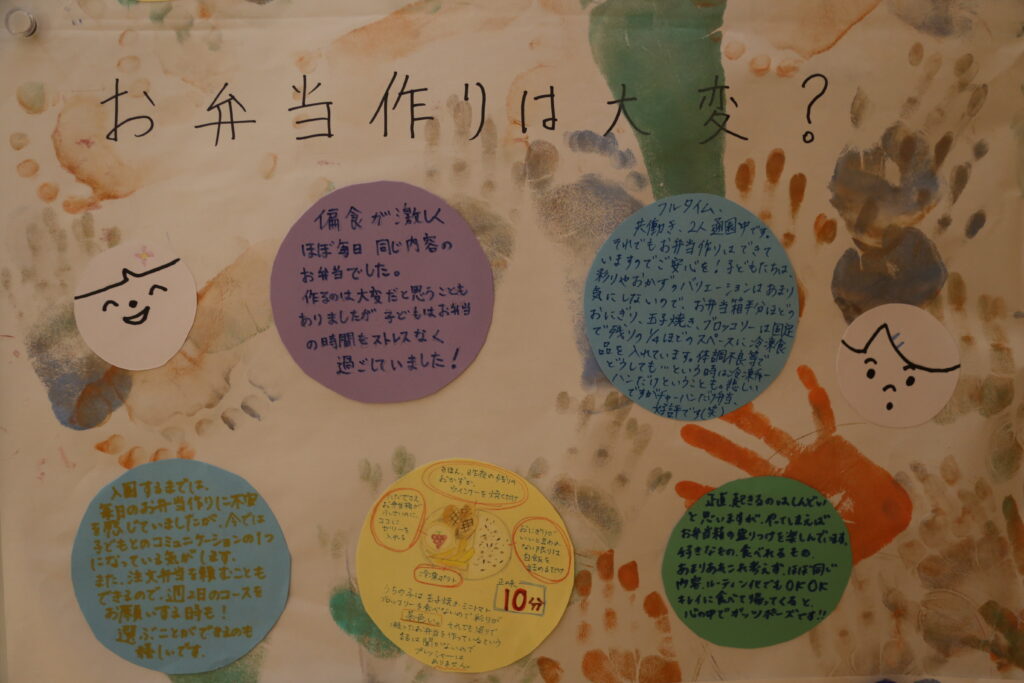 お弁当作りは大変?
偏食が激しく
ほぼ毎日 同じ内容の
お弁当でした。
作るのは大変だと思うことも
ありましたが 子どもはお弁当
の時間をストレスなく
過ごしていました!
フルタイム、
共働き、2人通園中です。
それでもお弁当作りはできて
いますのでご安心を!子どもたちは、
彩りやおかずのバリエーションはあまり
気にしないので、お弁当箱半分ほどの
おにぎり、玉子焼き、ブロッコリーは固定
で残りの1/4ほどのスペースに冷凍食
品を入れています。体調不良等で
どうしても…という時は冷凍チャー
ハンだけということも。悲しい
ですがチャーハンだけ弁当、
好評です(笑)
入園するまでは、
毎日のお弁当作りに不安
を感じていましたが、今では
子どもとのコミュニケーションの1つ
になっている気がします。
また、注文弁当を頼むことも
できるので、週2日のコースを
お願いする時も!
選ぶことができるのも
嬉しいです。
きほん、昨夜の残りの
おかずか、
ウインナーを焼くだけ
お弁当箱が
小さいのに、
ココに
ゼリーを
入れる
おにぎりが
いいと言われ
ない限りは
白飯を
詰めるだけ
10分
うちの子は玉子焼き・ミニトマト
ブロッコリーを食べないので彩りが
茶色い。それでも園で
お弁当を作っているという
話は聞かないので
プレッシャーは
ありません。
正直、起きるのはしんどい
と思いますが、やってしまえば
お弁当箱の盛りつけを楽しんでいます。
好きなもの、食べれるもの、
あまりあれこれ考えず、ほぼ同じ
内容、ルーティン化でもOKOK
キレイに食べて帰ってくると、
心の中でガッツポーズです!!